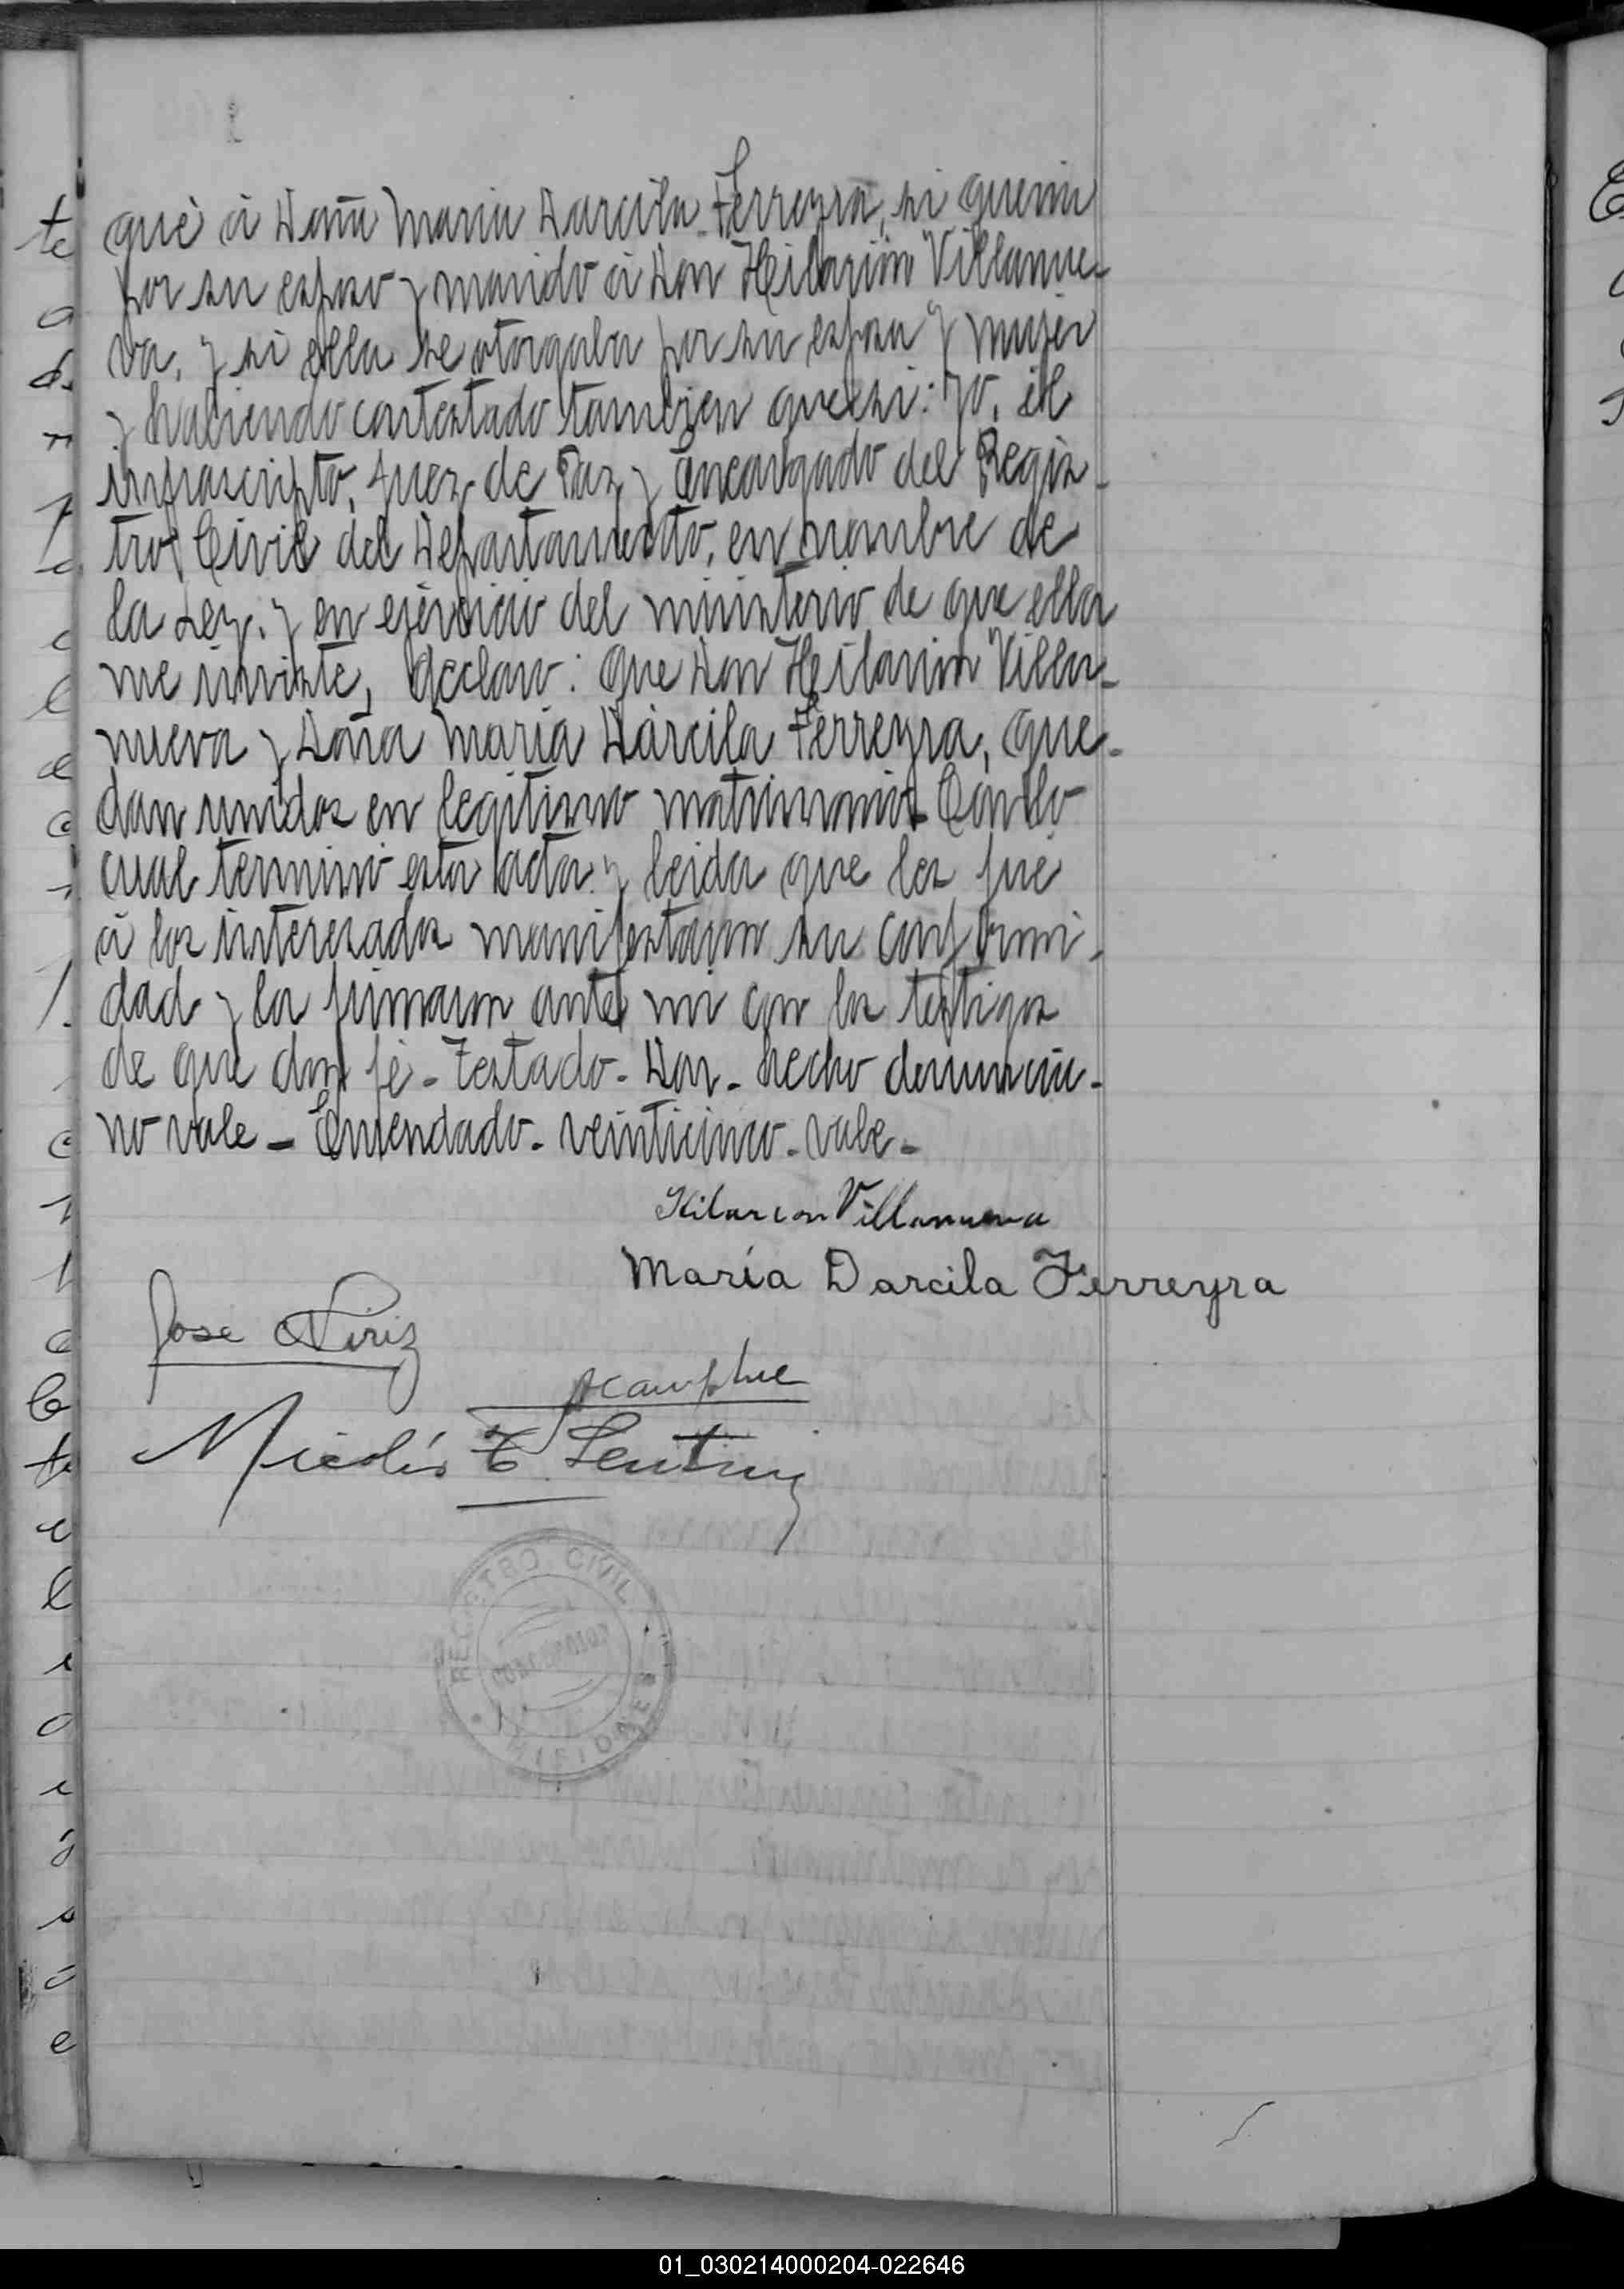 qué á Doña Maria Darcila Ferreyra, si queria
por su esposo y marido á Don Hilarión Villanue-
va, y si ella se otorgaba por su esposa y mujer
y habiendo contestado tambien que si: yo, el
infrascripto, Juez de Paz y Encargado del Regis-
tro Civil del Departamento, en nombre de
la Ley, y en ejércicio del ministerio de que ella
me inviste, declaro: Que Don Hilarion Villa-
nueva y Doña Maria Dárcila Ferreyra, que-
dan unidos en legitimo matrimonio. Con lo
cual terminó esta acta y leida que les fué
á los interesados manifestaron su conformi-
dad y la firmaron ante mi con los testigos
de que doy fé - Testado - Don - hecho denuncia -
no vale - Enmendado - veinticinco - vale -
Hilarion Villanueva
María Darcila Ferreyra
José Piriz
Nicolás
REGISTRO CIVIL
MISIONES
01_030214000204-022646